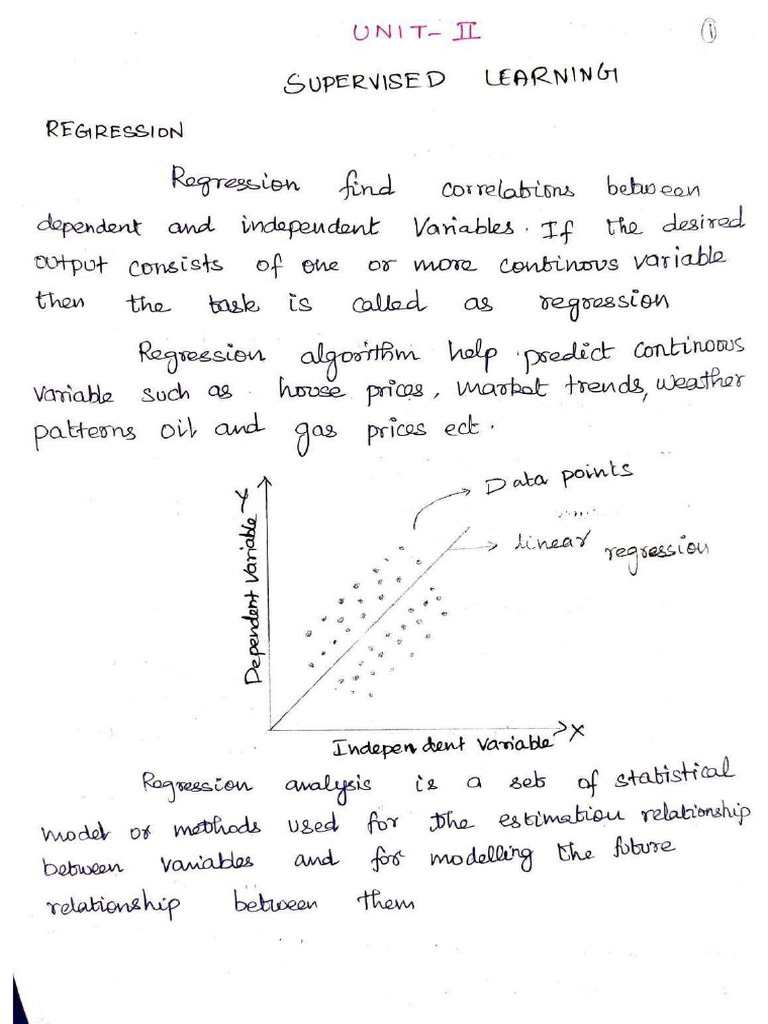 UNIT-II
1
SUPERVISED LEARNING
REGRESSION
Regression find correlations between
dependent and independent Variables. If the desired
output consists of one or more continous variable
then the task is called as regression
Regression algorithm help predict continous
variable such as house prices, market trends, weather
patterns oil and gas prices ect.
Data points
linear regression
Dependent Variable Y
Independent Variable X
Regression analysis is a set of statistical
model or methods used for the estimation relationship
between variables and for modelling the future
relationship between them